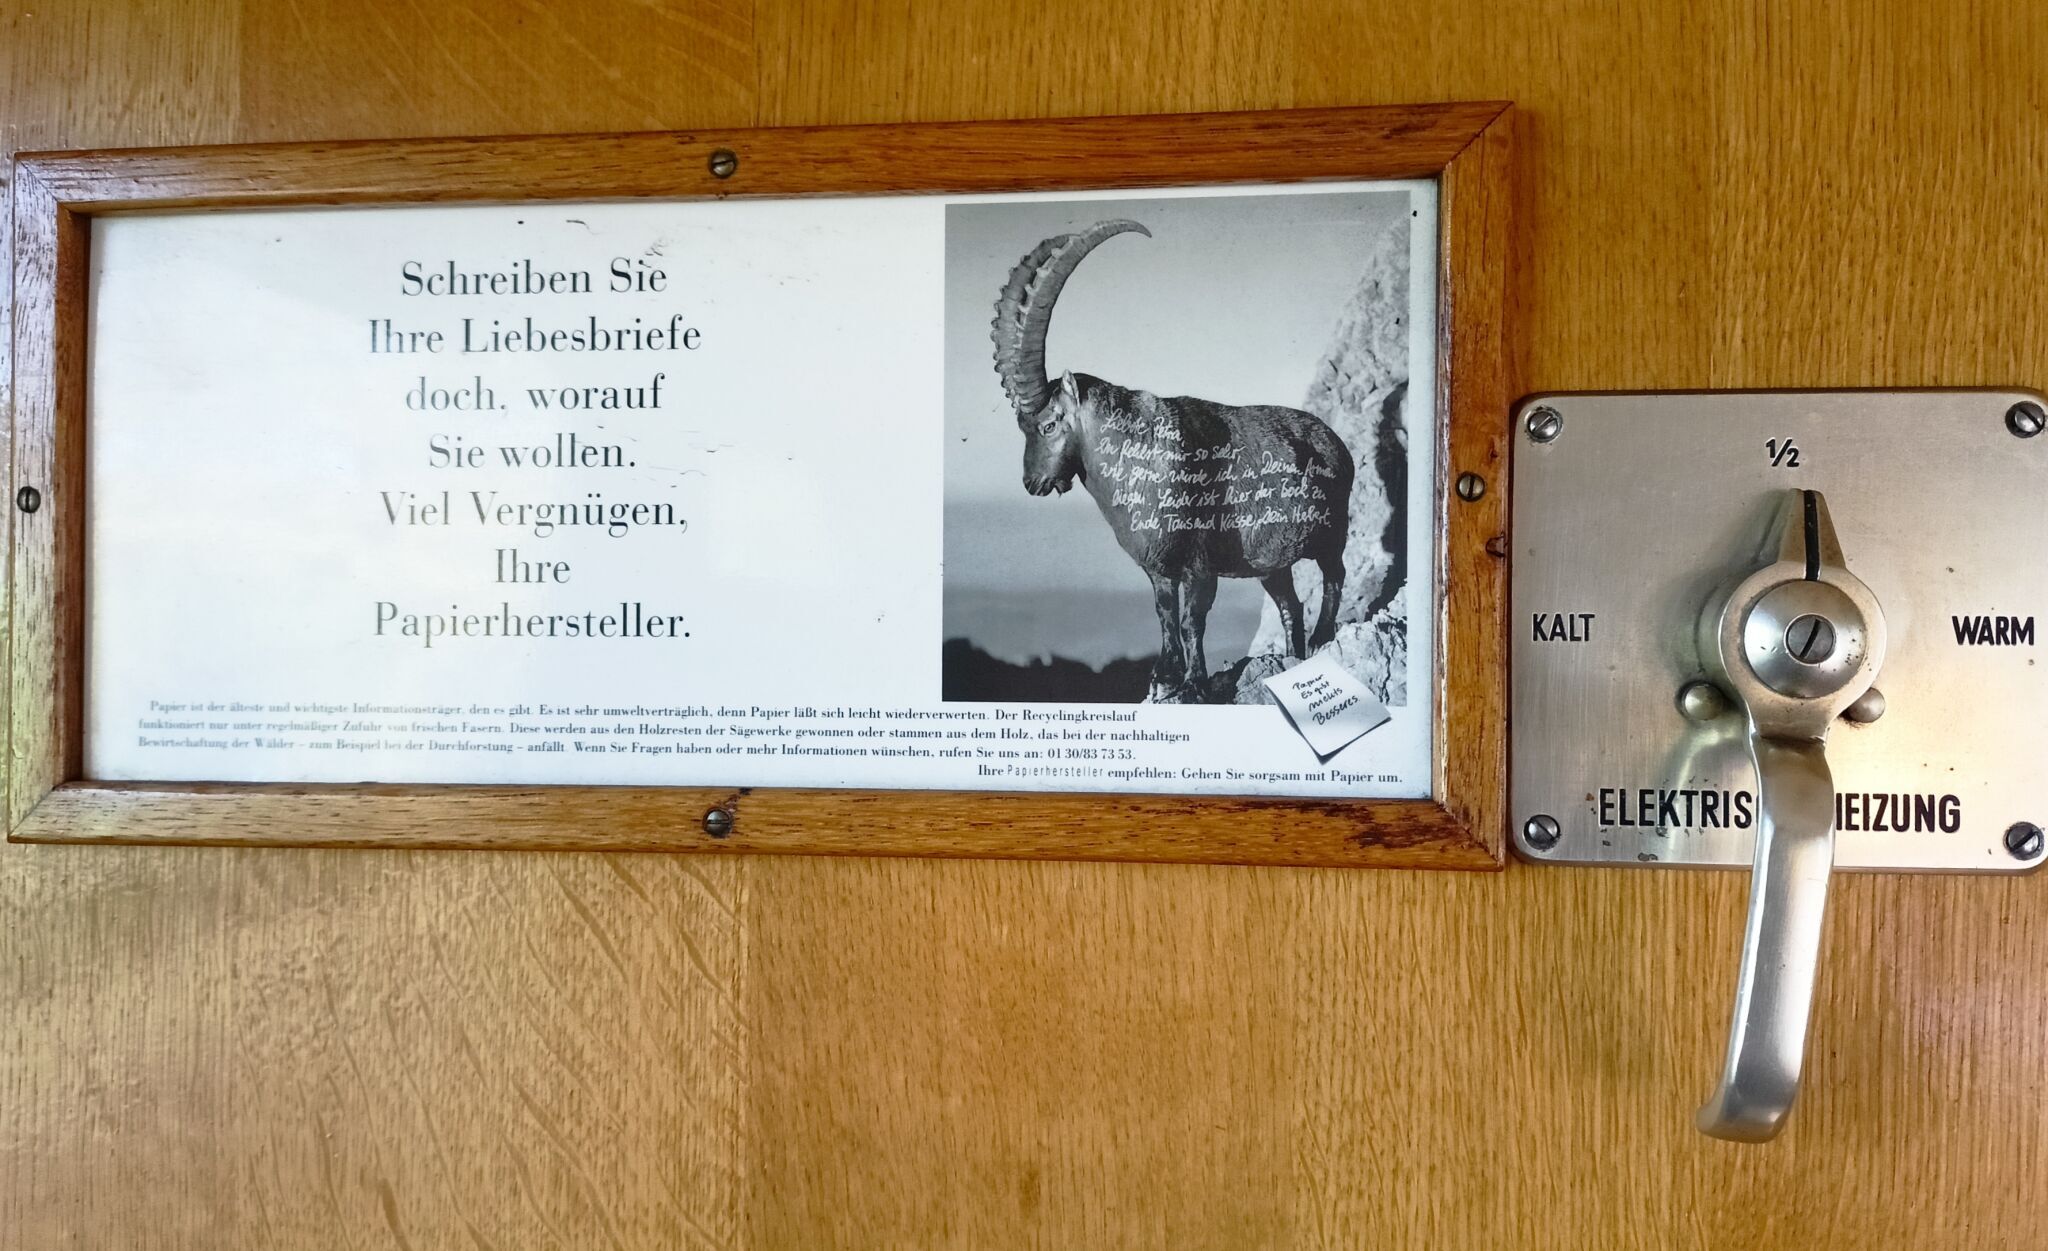 Schreiben Sie
Ihre Liebesbriefe
doch, worauf
Sie wollen.
Viel Vergnügen,
Ihre
Papierhersteller.
Liebste Petra,
Du fehlst mir so sehr,
wie gerne würde ich in Deinen Armen
liegen. Leider ist hier der Bock zu
Ende, Tausend Küsse, Dein Herbert.
Papier
Es gibt
nichts
Besseres.
Papier ist der älteste und wichtigste Informationsträger, den es gibt. Es ist sehr umweltverträglich, denn Papier läßt sich leicht wiederverwerten. Der Recyclingkreislauf
funktioniert nur unter regelmäßiger Zufuhr von frischen Fasern. Diese werden aus den Holzresten der Sägewerke gewonnen oder stammen aus dem Holz, das bei der nachhaltigen
Bewirtschaftung der Wälder – zum Beispiel bei der Durchforstung – anfällt. Wenn Sie Fragen haben oder mehr Informationen wünschen, rufen Sie uns an: 01 30/83 73 53.
Ihre Papierhersteller empfehlen: Gehen Sie sorgsam mit Papier um.
1/2
KALT
WARM
ELEKTRIS EIZUNG